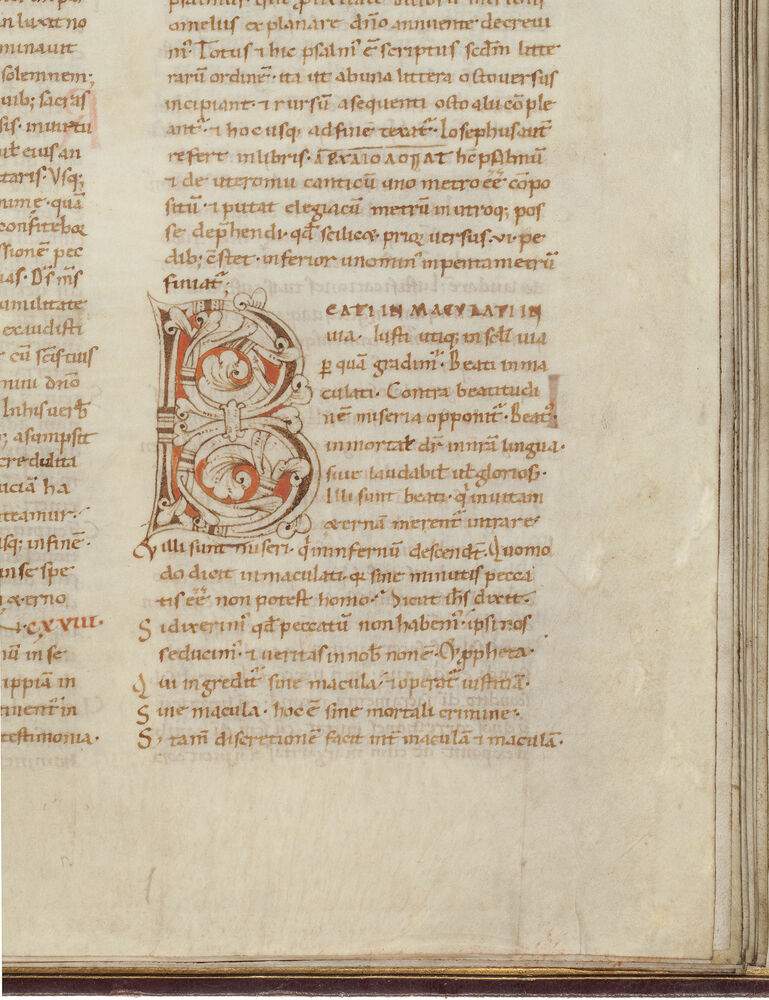 minauit
solemnem;
uib; sacras
sis. inuirtu
eius an
taris. Vsq;
confitebor
ssionē pec
humilitate
exaudisti
cū sc̄is tuis
mini dn̄o
In his uerb
asumpsit
credulita
ha
teamur.
usq; in finē.
in se spe
& eterno
CXVIII.
in se
ippiā in
testimonia.
omelius explanare dn̄o annuente decreui
mꝰ. Totus & hic psalmꝰ ē scriptus scdm̄ litte
rarū ordinē. ita ut ab una littera octo uersus
incipiant. & rursū a sequenti octo alii cōple
ant᷑. & hoc usq; ad finē texat᷑. Iosephus aut̄
refert in libris. hc̄ psalmū
& deuteronomii canticū uno metro ēē cōpo
sitū. & putat elegiacū metrū in utroq; pos
se dep̄hendi. qd̄ scilicet prior uersus. vi. pe
dib; cōstet. inferior uno min̄ in pentametrū
finiat᷑;
BEATI INMACULATI IN
uia. Iusti utiq; in sola uia
ꝑ quā gradimꝰ. Beati inma
culati. Contra beatitudi
nē miseria opponit᷑. Beatꝰ.
inmortał dr̄ in nr̄a lingua.
siue laudabił uł gloriosꝰ.
Illi sunt beati. qͥ in uitam
æternā merent᷑ intrare.
& illi sunt miseri. qͥ in infernū descendt̄. Quomo
do dicit inmaculati. qr̄ sine minutis pecca
tis ēē non potest homo. Sicut ih̄s dixit.
Si dixerimꝰ qd̄ peccatū non habemꝰ. ipsi nos
seducimꝰ. & ueritas in nob̄ non ē. & ꝓpheta.
Qui ingredit᷑ sine macula. & operat᷑ iustitiā.
Sine macula. hoc ē sine mortali crimine.
S; tam̄ discretionē facit int̄ maculā & maculā.